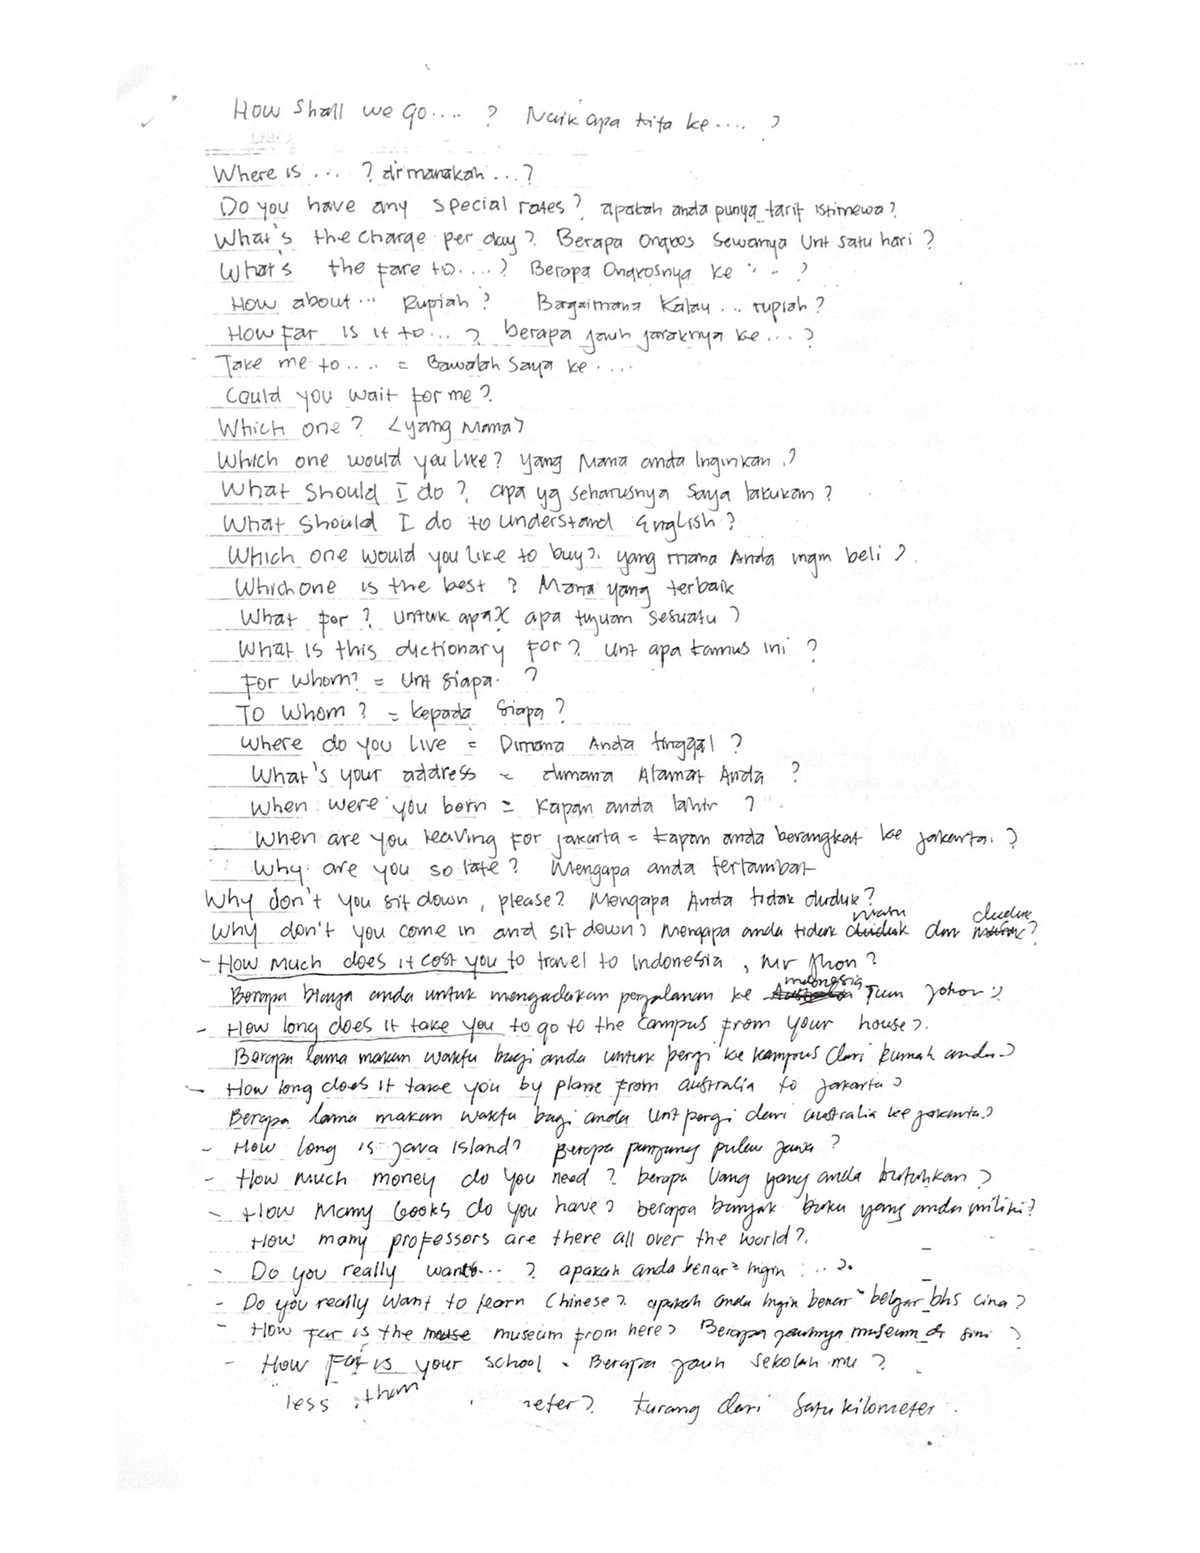 How Shall we go.... ? Naik apa kita ke.... ?
Where is ... ? dimanakah ...?
Do you have any special rates? apakah anda punya tarif istimewa?
What's the charge per day? Berapa Ongkos sewanya Unt satu hari ?
What's the fare to....? Berapa Ongkosnya ke .... ?
How about ... Rupiah? Bagaimana Kalau ... rupiah?
How far is it to... ? berapa jauh jaraknya ke ... ?
Take me to .... = Bawalah Saya ke ....
Could you wait for me?
Which one? <yang Mana>
Which one would you like? yang Mana anda Inginkan ?
What Should I do ? apa yg seharusnya Saya lakukan ?
What Should I do to understand English ?
Which one would you like to buy? yang mana Anda ingin beli ?
Which one is the best ? Mana yang terbaik
What for ? untuk apa apa tujuan sesuatu ?
What Is this dictionary for? Unt apa kamus ini ?
For Whom? = Unt Siapa ?
To Whom ? = kepada Siapa ?
Where do you live = Dimana Anda tinggal ?
What's your address ~ dimana Alamat Anda ?
When were you born = Kapan anda lahir ?
When are you leaving for jakarta = kapan anda berangkat ke jakarta ?
Why are you so late? Mengapa anda terlambat
Why don't you sit down, please? Mengapa Anda tidak duduk?
Why don't you come in and sit down? Mengapa anda tidak duduk dan duduk?
- How Much does it cost you to travel to Indonesia, Mr Jhon?
Berapa biaya anda untuk mengadakan perjalanan ke Indonesia Tuan
- How long does it take you to go to the campus from your house?
Berapa lama makan waktu bagi anda untuk pergi ke kampus dari Rumah anda?
- How long does it take you by plane from australia to jakarta?
Berapa lama makan waktu bagi anda Unt pergi dari australia ke jakarta?
- How long is java Island? Berapa panjang pulau jawa ?
- How Much money do you need ? berapa Uang yang anda butuhkan ?
- How Many books do you have? berapa banyak buku yang anda miliki?
How many professors are there all over the world?
- Do you really want ... ? apakah anda benar² ingin ... ?
- Do you really want to learn Chinese? apakah anda ingin benar² belajar bhs Cina?
- How far is the museum from here? Berapa jauhnya museum dr sini ?
- How Far is your school = Berapa jauh sekolah mu ?
less than eter? kurang dari Satu kilometer.